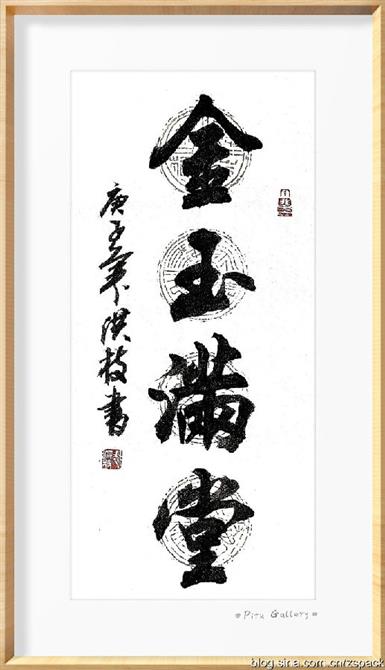 金玉满堂
庚子年 洪枝书
Pitu Gallery
blog.sina.com.cn/rzspack